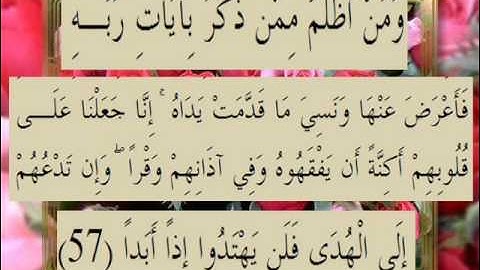 وَمَنْ أَظْلَمُ مِمَّن ذُكِّرَ بِآيَاتِ رَبِّـــهِ
فَأَعْرَضَ عَنْهَا وَنَسِيَ مَا قَدَّمَتْ يَدَاهُ ۚ إِنَّا جَعَلْنَا عَلَـــى
قُلُوبِهِمْ أَكِنَّةً أَن يَفْقَهُوهُ وَفِي آذَانِهِمْ وَقْراً ۖ وَإِن تَدْعُهُمْ
إِلَى الْهُدَى فَلَن يَهْتَدُوا إِذاً أَبَداً (57)